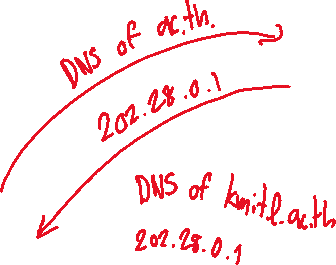 DNS of ac.th.
202.28.0.1
DNS of kmitl.ac.th
202.28.0.1